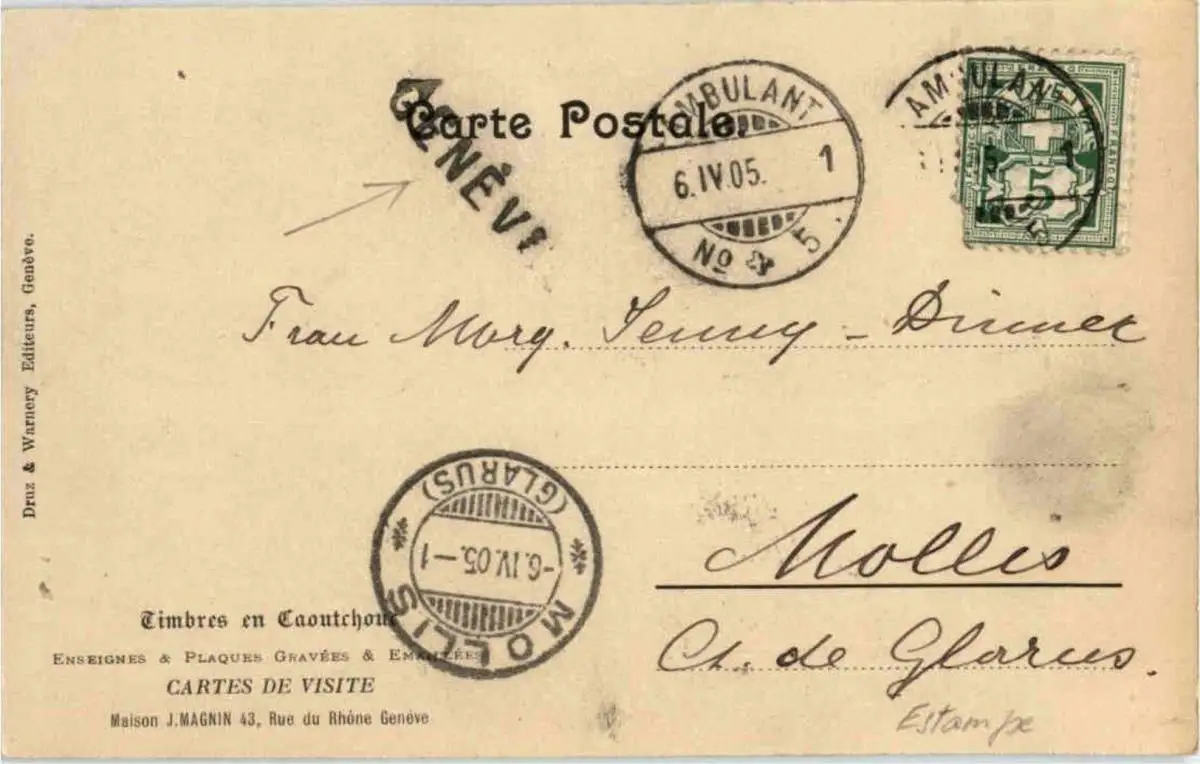 Carte Postale.
GENÈVE
AMBULANT
6.IV.05. 1
No 5
AMBULANT
5 1
5
5
Frau Marg. Jenny - Dinner
Mollis
Ct. de Glarus.
Estampe
MOLLIS
(GLARUS)
-6.IV.05.-1
Druz & Warnery Editeurs, Genève.
Timbres en Caoutchouc
ENSEIGNES & PLAQUES GRAVÉES & EMAILLÉES
CARTES DE VISITE
Maison J.MAGNIN 43, Rue du Rhône Genève